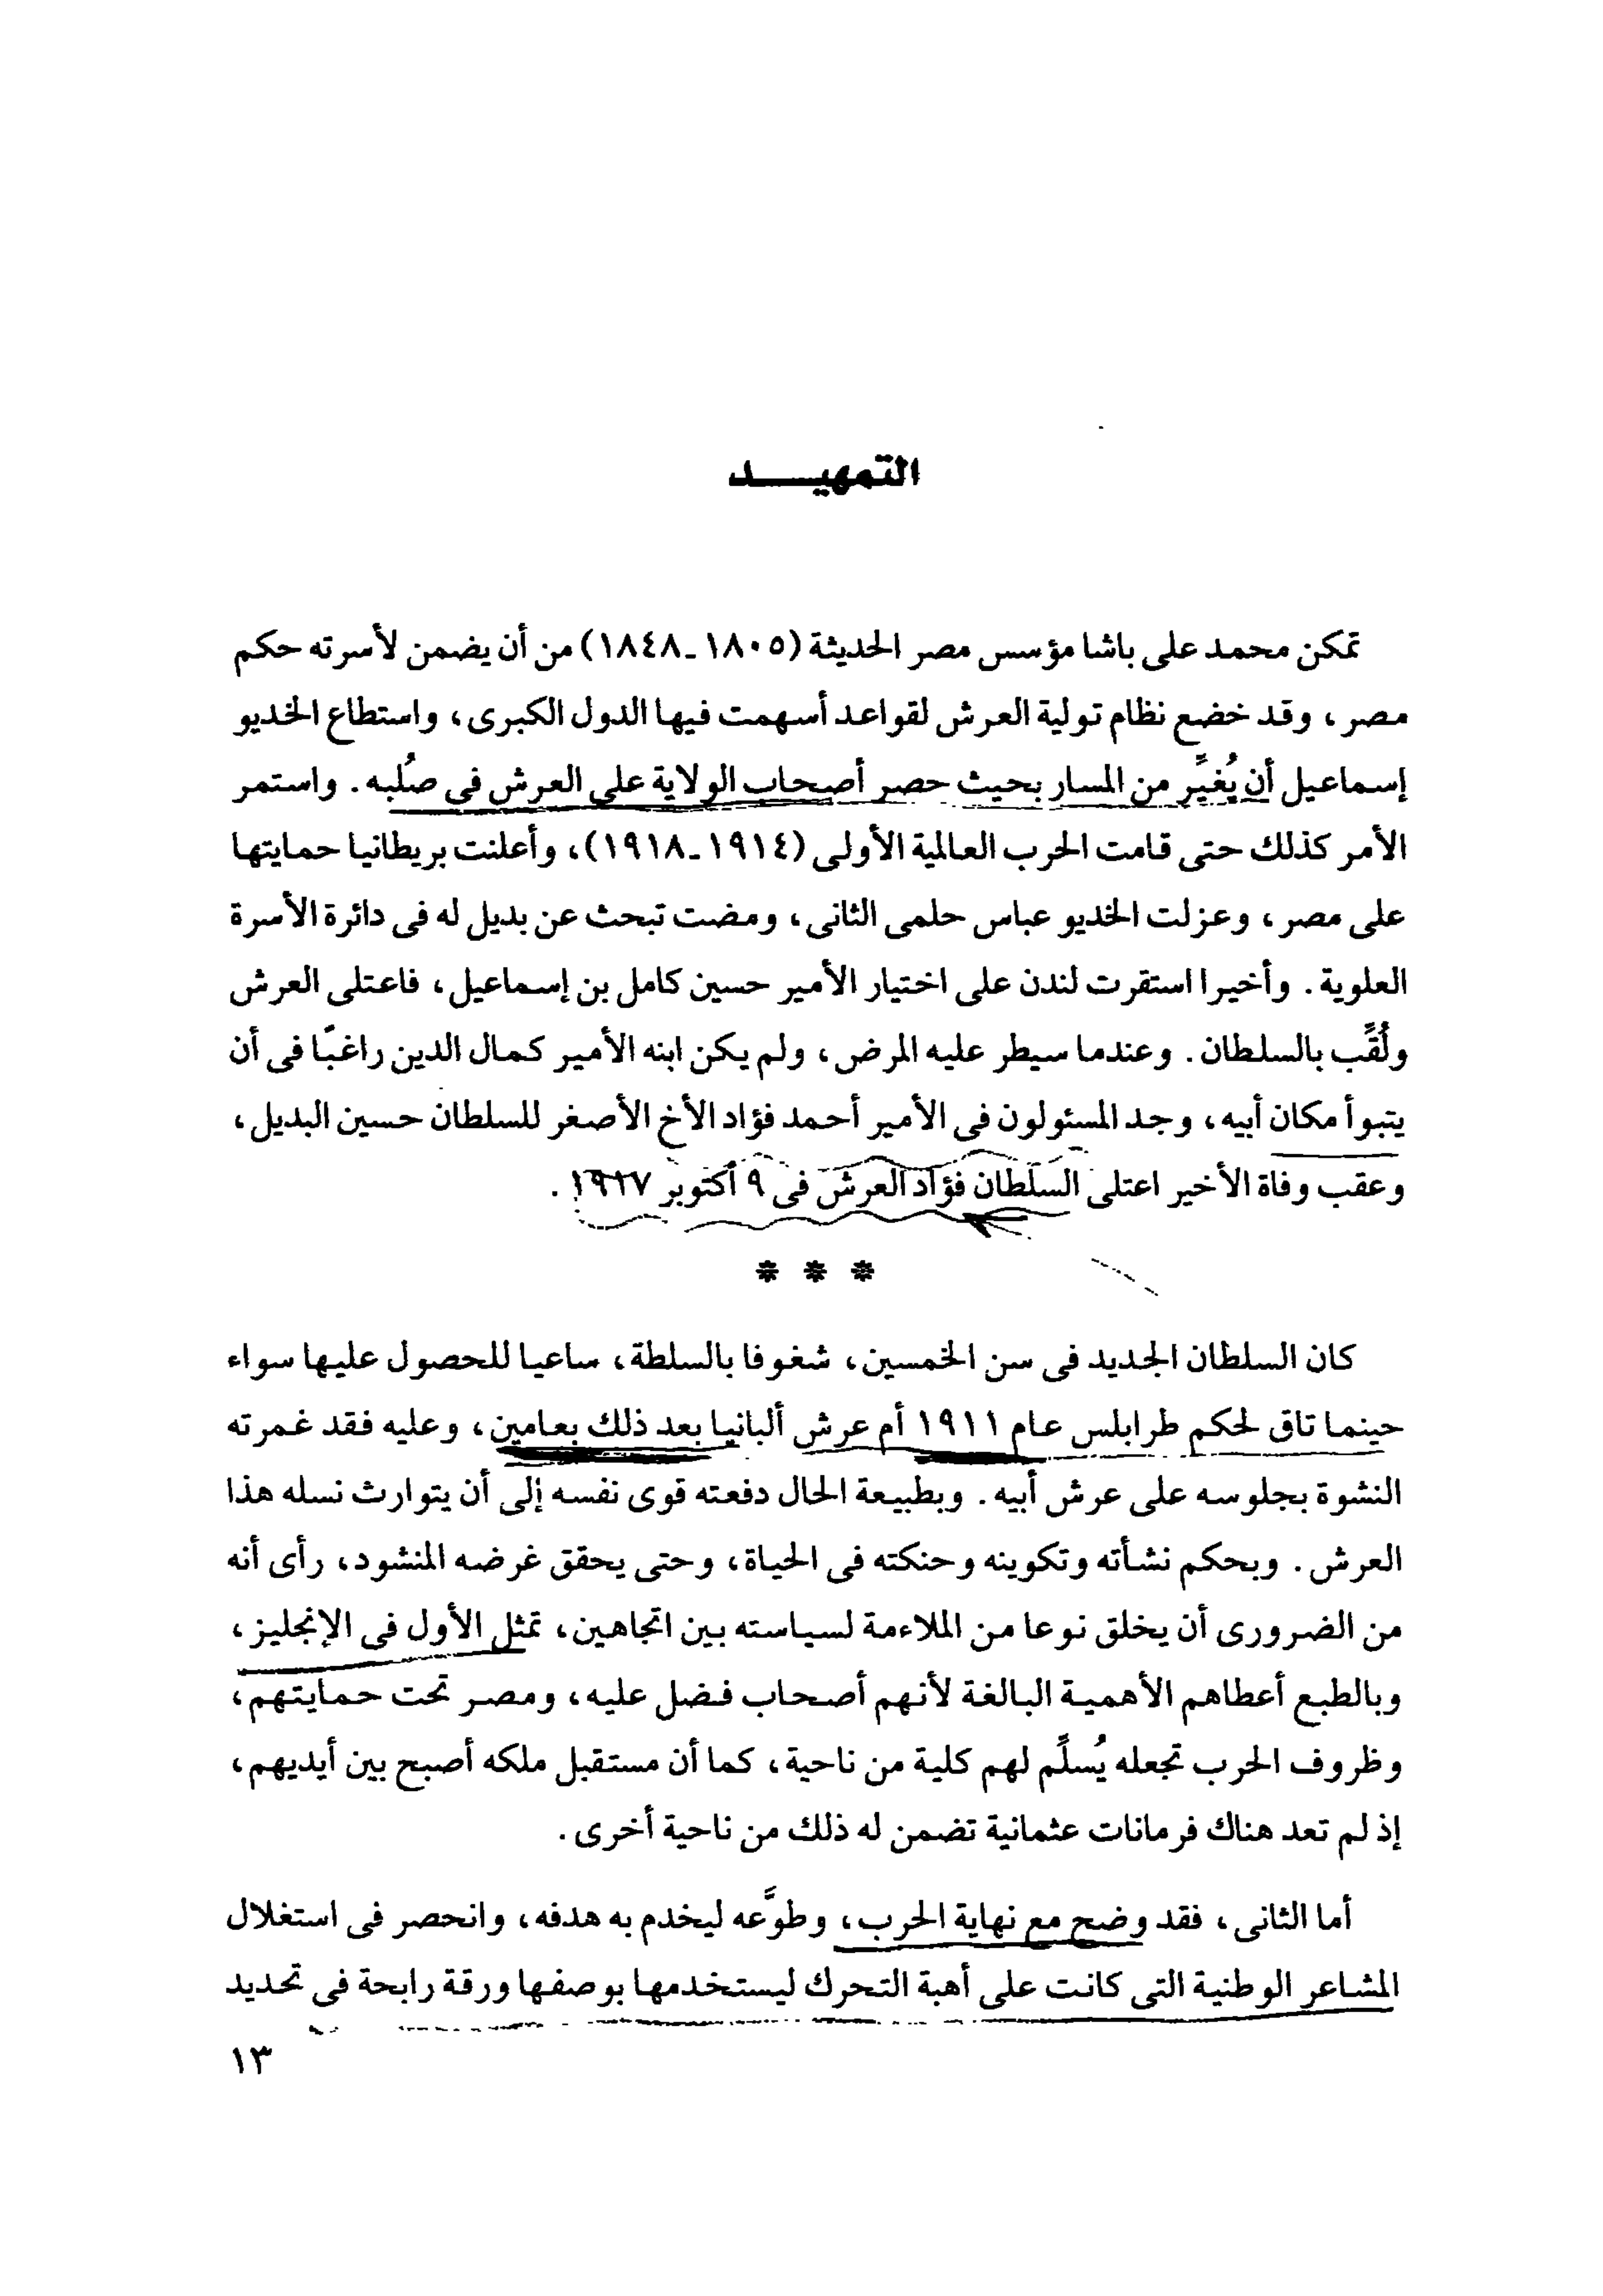 التمهيـــــد
تمكن محمد على باشا مؤسس مصر الحديثة (١٨٠٥ـ١٨٤٨) من أن يضمن لأسرته حكم
مصر، وقد خضع نظام تولية العرش لقواعد أسهمت فيها الدول الكبرى، واستطاع الخديو
إسماعيل أن يُغيِّر من المسار بحيث حصر أصحاب الولاية على العرش فى صُلبه. واستمر
الأمر كذلك حتى قامت الحرب العالمية الأولى (١٩١٤ـ١٩١٨)، وأعلنت بريطانيا حمايتها
على مصر، وعزلت الخديو عباس حلمى الثانى، ومضت تبحث عن بديل له فى دائرة الأسرة
العلوية. وأخيرا استقرت لندن على اختيار الأمير حسين كامل بن إسماعيل، فاعتلى العرش
ولُقِّب بالسلطان. وعندما سيطر عليه المرض، ولم يكن ابنه الأمير كمال الدين راغبًا فى أن
يتبوأ مكان أبيه، وجد المسئولون فى الأمير أحمد فؤاد الأخ الأصغر للسلطان حسين البديل،
وعقب وفاة الأخير اعتلى السلطان فؤاد العرش فى ٩ أكتوبر ١٩١٧.
* * *
كان السلطان الجديد فى سن الخمسين، شغوفا بالسلطة، ساعيا للحصول عليها سواء
حينما تاق لحكم طرابلس عام ١٩١١ أم عرش ألبانيا بعد ذلك بعامين، وعليه فقد غمرته
النشوة بجلوسه على عرش أبيه. وبطبيعة الحال دفعته قوى نفسه إلى أن يتوارث نسله هذا
العرش. وبحكم نشأته وتكوينه وحنكته فى الحياة، وحتى يحقق غرضه المنشود، رأى أنه
من الضرورى أن يخلق نوعا من الملاءمة لسياسته بين اتجاهين، تمثل الأول فى الإنجليز،
وبالطبع أعطاهم الأهمية البالغة لأنهم أصحاب فضل عليه، ومصر تحت حمايتهم،
وظروف الحرب تجعله يُسلِّم لهم كلية من ناحية، كما أن مستقبل ملكه أصبح بين أيديهم،
إذ لم تعد هناك فرمانات عثمانية تضمن له ذلك من ناحية أخرى.
أما الثانى، فقد وضح مع نهاية الحرب، وطوَّعه ليخدم به هدفه، وانحصر فى استغلال
المشاعر الوطنية التى كانت على أهبة التحرك ليستخدمها بوصفها ورقة رابحة فى تحديد
١٣